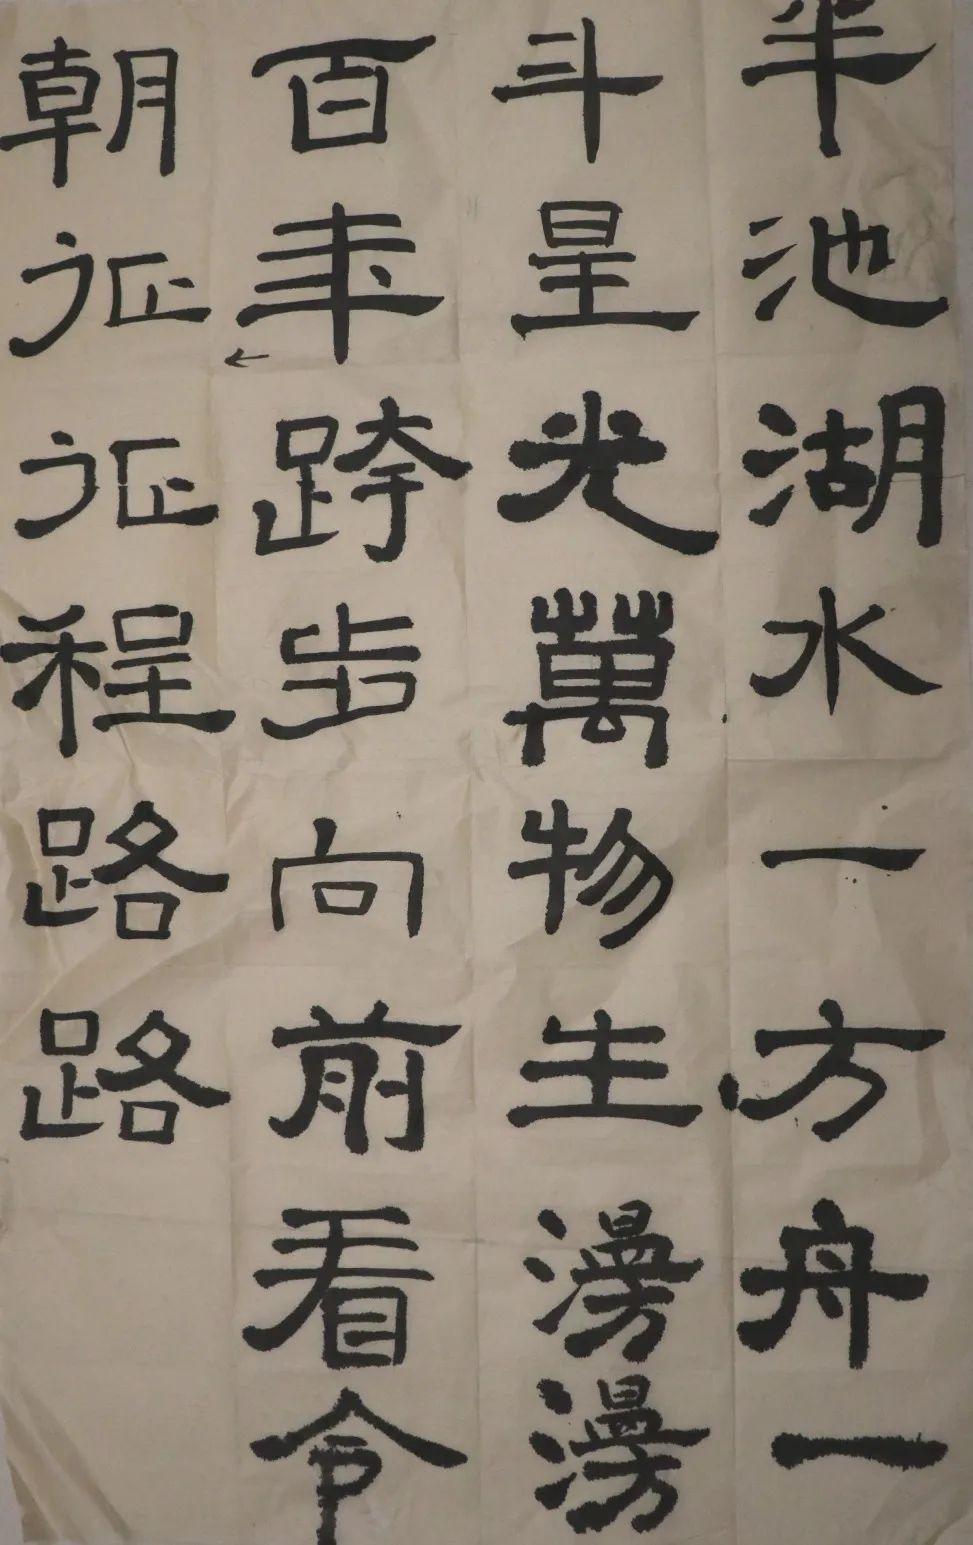 半池湖水一方舟一
斗星光萬物生漫漫
百年跨步向前看令
朝征征程路路